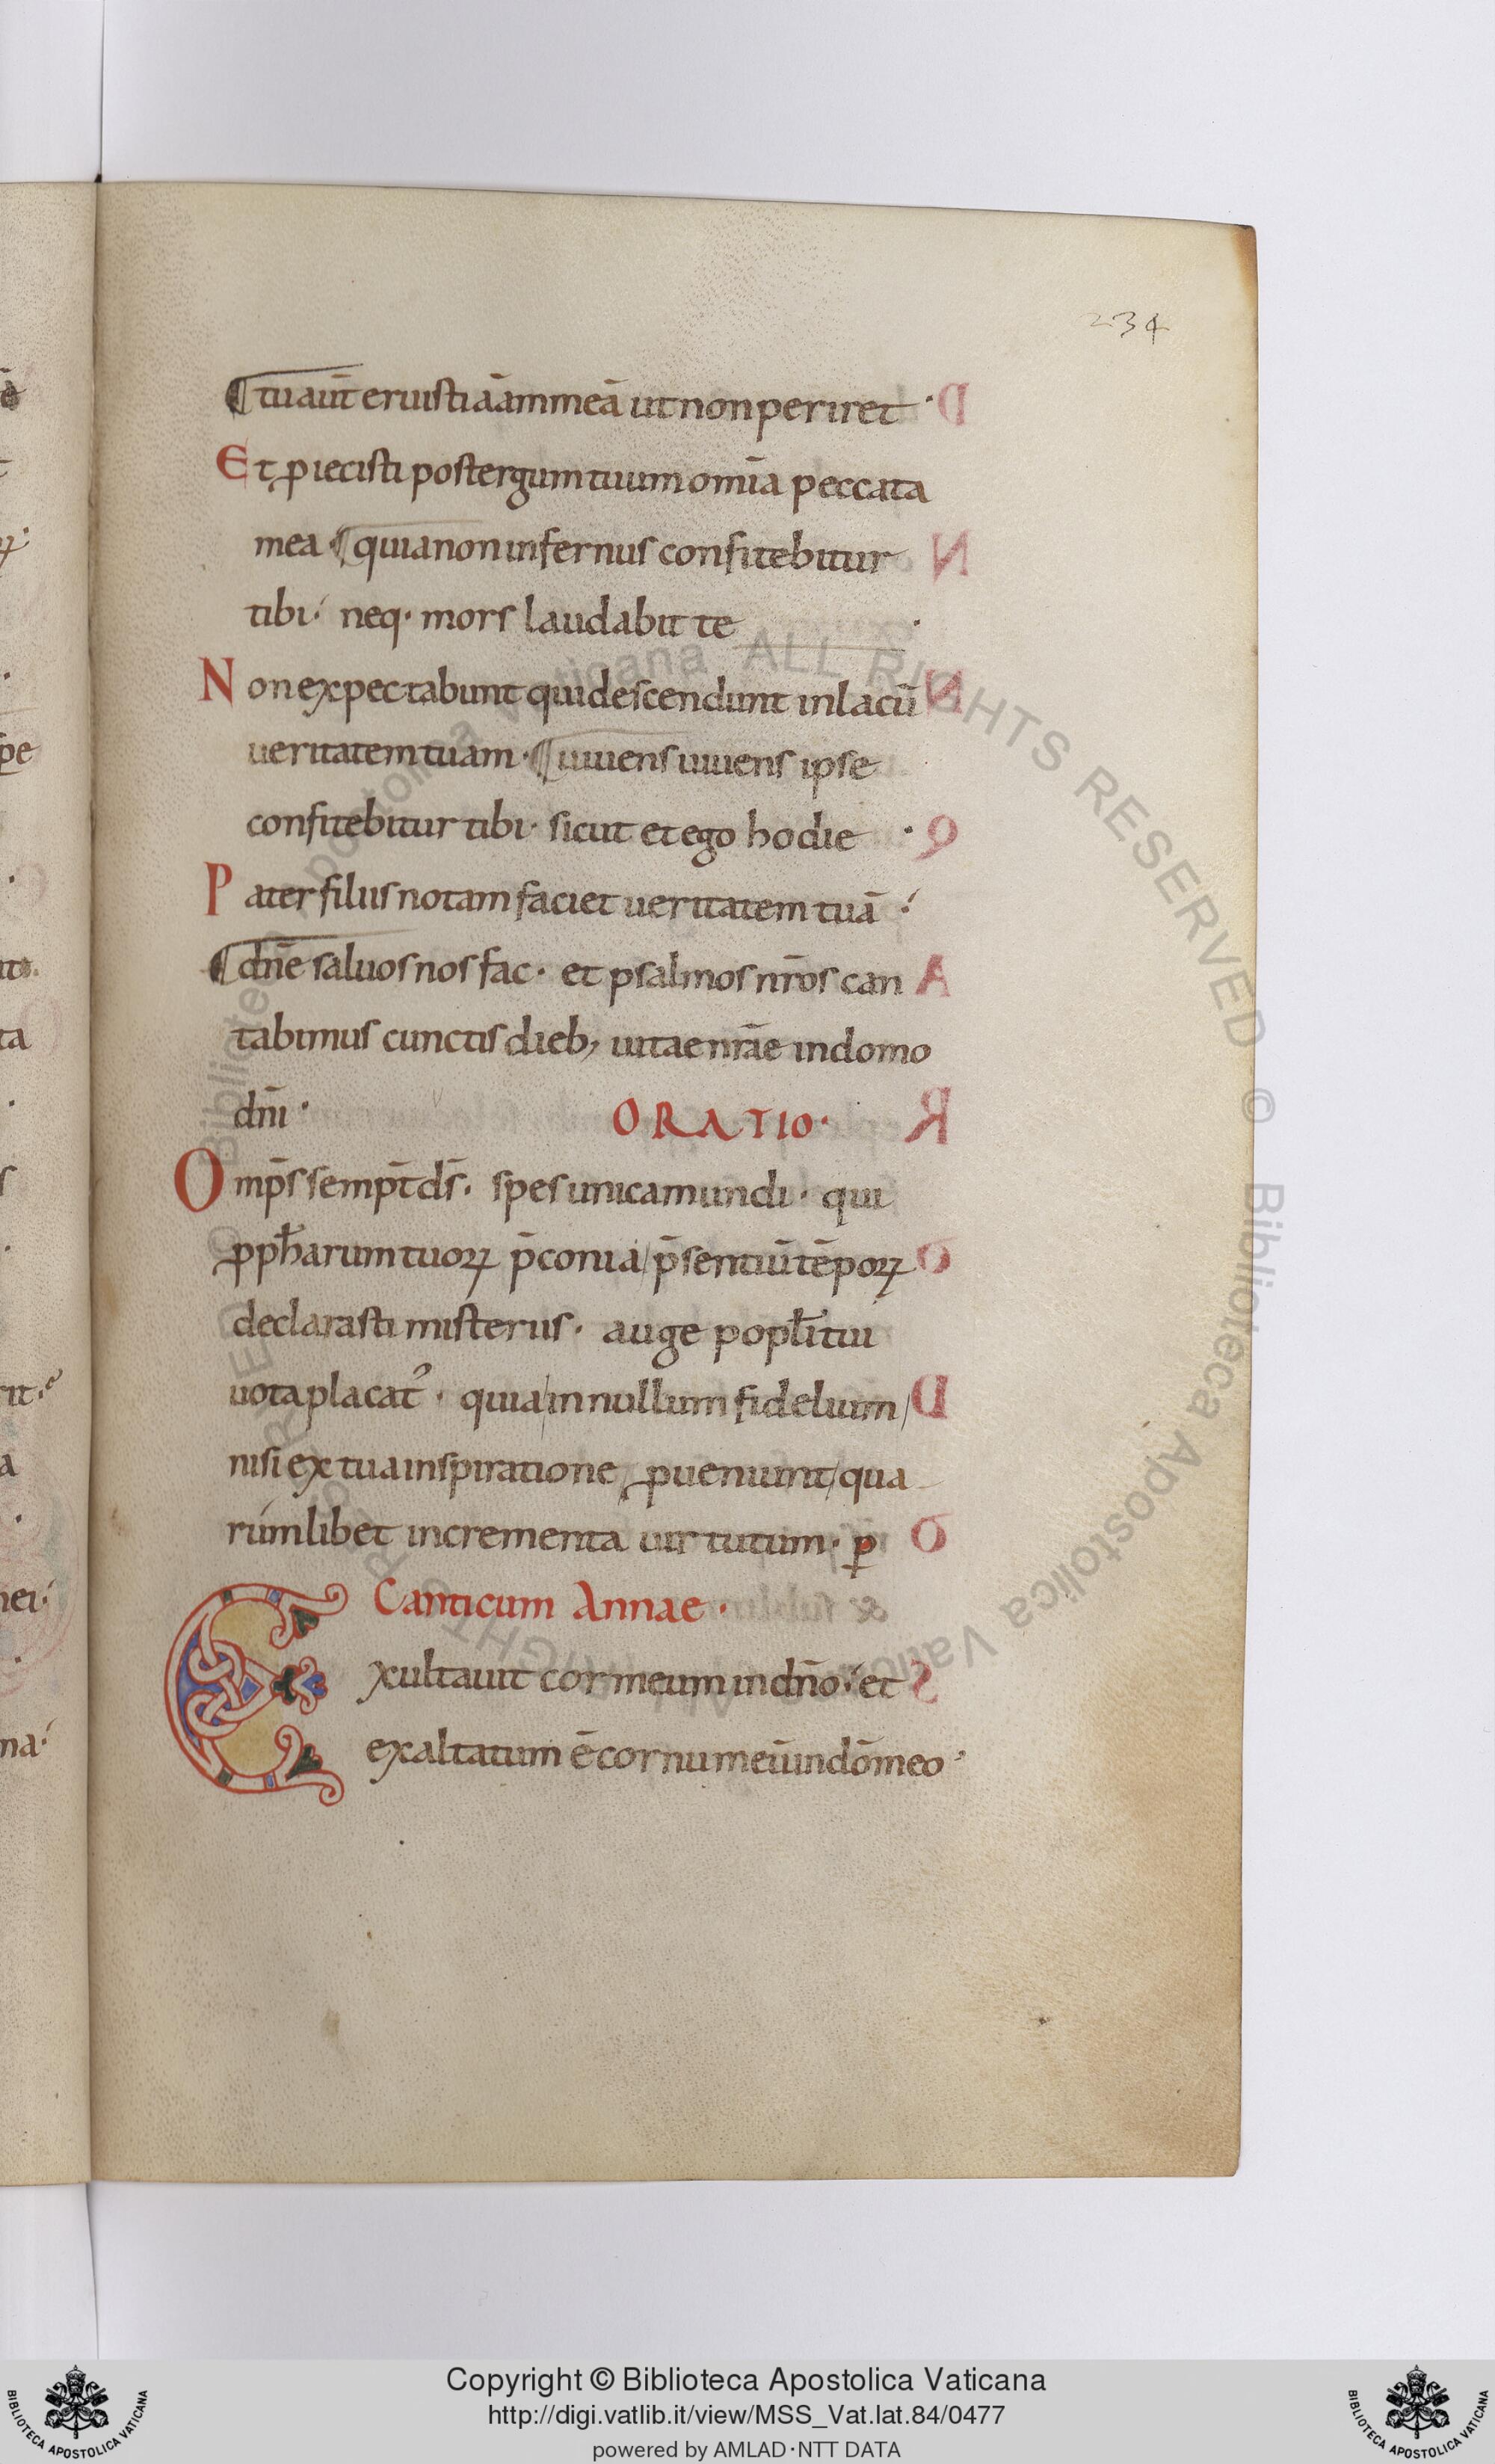 234
¶ tu aūt eruisti āam meā ut non periret ·
Et ꝓiecisti post ergum tuum om̄ia peccata
mea · ¶ quia non infernus confitebitur
tibi · neq· mors laudabit te ·
Non expectabunt qui descendunt in lacū
ueritatem tuam · ¶ uiuens uiuens ipse
confitebitur tibi · sicut et ego hodie ·
Pater filiis notam faciet ueritatem tuā ·
¶ dn̄e saluos nos fac · et psalmos nr̄os can
tabimus cunctis dieb; uitae nr̄ae in domo
dn̄i · ORATIO ·
Omp̄s semp̄t ds̄ · spes unica mundi · qui
ꝓph̄arum tuoꝝ p̄conia p̄sentiū tēpoꝝ
declarasti misteriis · auge popl̄i tui
uota placat᾽ · quia in nullum fidelium
nisi ex tua inspiratione ꝓueniunt qua
rumlibet incrementa uirtutum · ꝑ
Canticum Annae ·
Exultauit cor meum in dn̄o · et
exaltatum ē cornu meū in dō meo ·
Copyright © Biblioteca Apostolica Vaticana
http://digi.vatlib.it/view/MSS_Vat.lat.84/0477
powered by AMLAD·NTT DATA
BIBLIOTECA APOSTOLICA VATICANA
BIBLIOTECA APOSTOLICA VATICANA
Biblioteca Apostolica Vaticana ALL RIGHTS RESERVED © Biblioteca Apostolica Vaticana